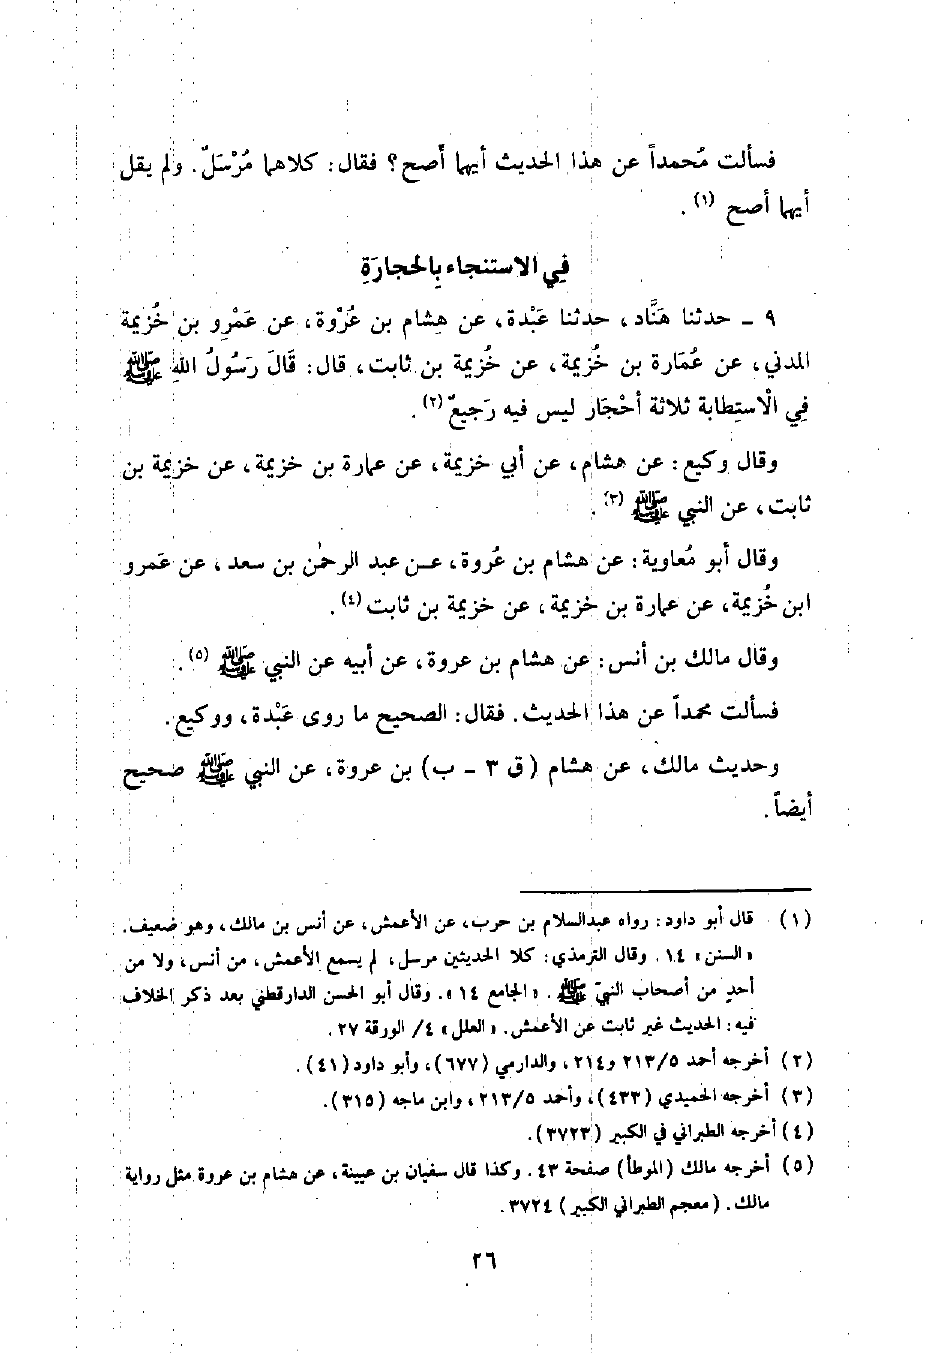 فسألت مُحمداً عن هذا الحديث أيهما أَصح؟ فقال: كلاهما مُرْسَلٌ. ولم يقل
أيهما أصح (١).
فِي الاستنجاء بِالحجارَةِ
٩ ـ حدثنا هَنَّاد، حدثنا عَبْدة، عن هِشام بن عُرْوة، عن عَمْرِو بن خُزيمة
المدني، عن عُمَارة بن خُزيمة، عن خُزيمة بن ثابت، قال: قَالَ رَسُولُ اللهِ ﷺ
فِي الْاستِطابة ثلاثة أحْجَار ليس فيه رَجيعٌ (٢).
وقال وكيع: عن هشام، عن أبي خزيمة، عن عمارة بن خزيمة، عن خزيمة بن
ثابت، عن النبي ﷺ (٣).
وقال أبو مُعاوية: عن هشام بن عُروة، عن عبد الرحمٰن بن سعد، عن عَمرو
ابن خُزيمة، عن عمارة بن خزيمة، عن خزيمة بن ثابت (٤).
وقال مالك بن أنس: عن هشام بن عروة، عن أبيه عن النبي ﷺ (٥).
فسألت محمداً عن هذا الحديث. فقال: الصحيح ما روى عَبْدة، ووكيع.
وحديث مالك، عن هشام (ق ٣ ـ ب) بن عروة، عن النبي ﷺ صحيح
أيضاً.
(١) قال أبو داود: رواه عبدالسلام بن حرب، عن الأعمش، عن أنس بن مالك، وهو ضعيف.
«السنن» ١٤. وقال الترمذي: كلا الحديثين مرسل، لم يسمع الأعمش، من أنس، ولا من
أحدٍ من أصحاب النبيّ ﷺ. «الجامع ١٤». وقال أبو الحسن الدارقطني بعد ذكر الخلاف
فيه: الحديث غير ثابت عن الأعمش. «العلل» ٤/ الورقة ٢٧.
(٢) أخرجه أحمد ٢١٣/٥ و٢١٤، والدارمي (٦٧٧)، وأبو داود (٤١).
(٣) أخرجه الحميدي (٤٣٣)، وأحمد ٢١٣/٥، وابن ماجه (٣١٥).
(٤) أخرجه الطبراني في الكبير (٣٧٢٣).
(٥) أخرجه مالك (الموطأ) صفحة ٤٣. وكذا قال سفيان بن عيينة، عن هشام بن عروة مثل رواية
مالك. (معجم الطبراني الكبير) ٣٧٢٤.
٢٦